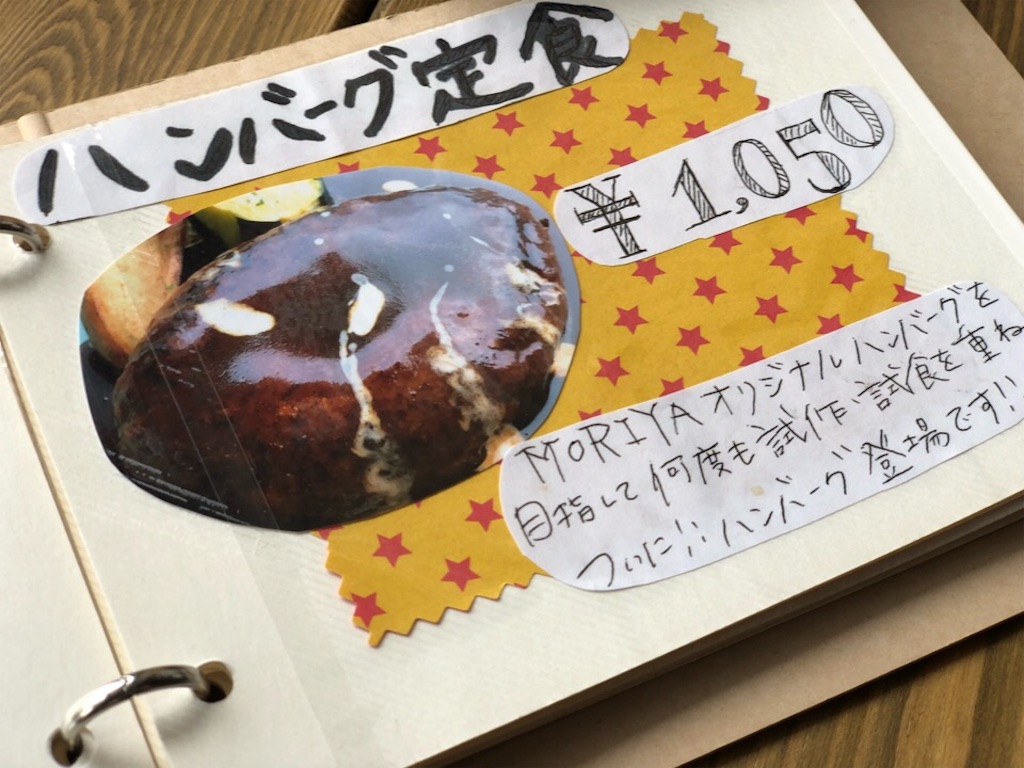 ハンバーグ定食
¥1,050
MORIYAオリジナルハンバーグを
目指して何度も試作、試食を重ね
ついに!!ハンバーグ登場です!!